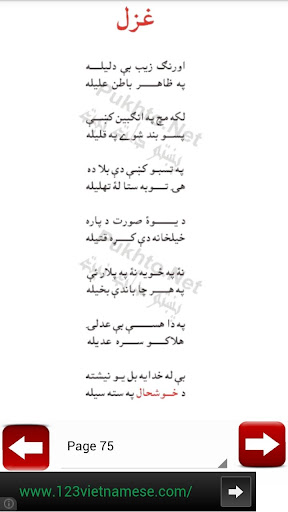 غزل
اورنگ زيب بې دليلـــه
په ظاهـــر باطن عليله
لکه مچ په انګبين کښـــې
پســـو بند شوے په قليله
په تسبو کښې دې بلا ده
هی تـــوبه ستا لۀ تهليله
د يـــوۀ صورت د پاره
خيلخانه دې کـــره قتيله
نۀ په خويه نۀ په پلار ئې
په هـــر چا باندې بخيله
په دا هســـې بې عدلی
هلاکو ســـره عديله
بې له خدايه بل يو نيشته
د خوشحال په سته سيله
Pukhto.Net
Pukhto.Net
Page 75
www.123vietnamese.com/